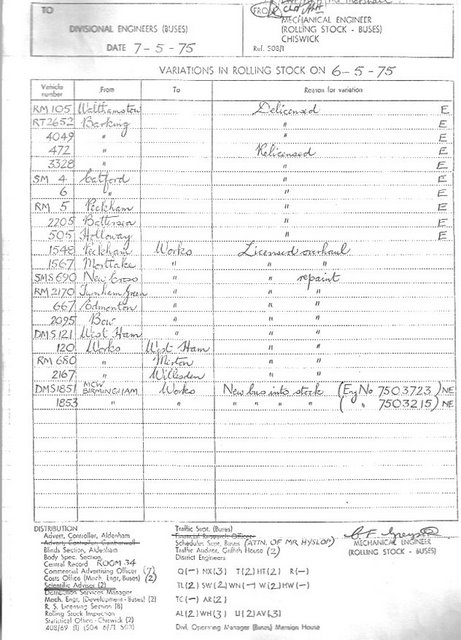 TO
FROM
DIVISIONAL ENGINEERS (BUSES)
DATE 7-5-75
MECHANICAL ENGINEER
(ROLLING STOCK - BUSES)
CHISWICK
Ref. 508/1
VARIATIONS IN ROLLING STOCK ON 6-5-75
Vehicle number From To Reason for variation
RM 105 Walthamstow Delicensed E
RT2652 Barking " E
4049 " " E
472 " Relicensed E
3328 " " E
SM 4 Catford " E
6 " " E
RM 5 Peckham " E
2205 Battersea " E
505 Holloway " E
1548 Peckham Works Licensed overhaul
1567 Mortlake " " "
SMS 690 New Cross " " repaint
RM 2170 Turnham Green " " "
667 Edmonton " " "
2095 Bow " " "
DMS 121 West Ham " " "
120 Works West Ham " "
RM 680 " Merton " "
2167 " Willesden " "
DMS1851 MCW BIRMINGHAM Works New bus into stock (Eng No 7503723) NE
1853 " " " " " " ( " 7503215) NE
DISTRIBUTION
Advert. Controller, Aldenham
Blinds Section, Aldenham
Body Spec. Section,
Central Record ROOM 34
Commercial Advertising Officer (7)
Costs Office (Mech. Engr, Buses) (2)
Scientific Adviser (2)
Distribution Services Manager
Mech. Engr. (Development - Buses) (2)
R. S. Licensing Section (8)
Rolling Stock Inspection
Statistical Office - Chiswick (2)
Traffic Supt. (Buses)
Financial Research Officer
Schedules Supt. Buses (ATTN. OF MR HYSLOP)
Traffic Auditor, Griffith House (2)
District Engineers
Q(-) NX(3) T(2) HT(2) R(-)
TL(2) SW(2) WN(-) W(2) HW(-)
TC(-) AR(2)
AL(2) WH(3) U(2) AV(3)
Divl. Operating Manager (Buses) Mansion House
MECHANICAL ENGINEER
(ROLLING STOCK - BUSES)